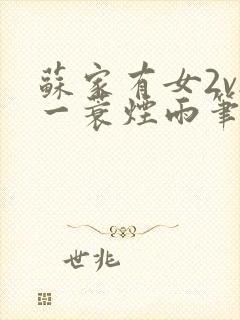 蘇家有女2v
一蓑煙雨筆
世兆